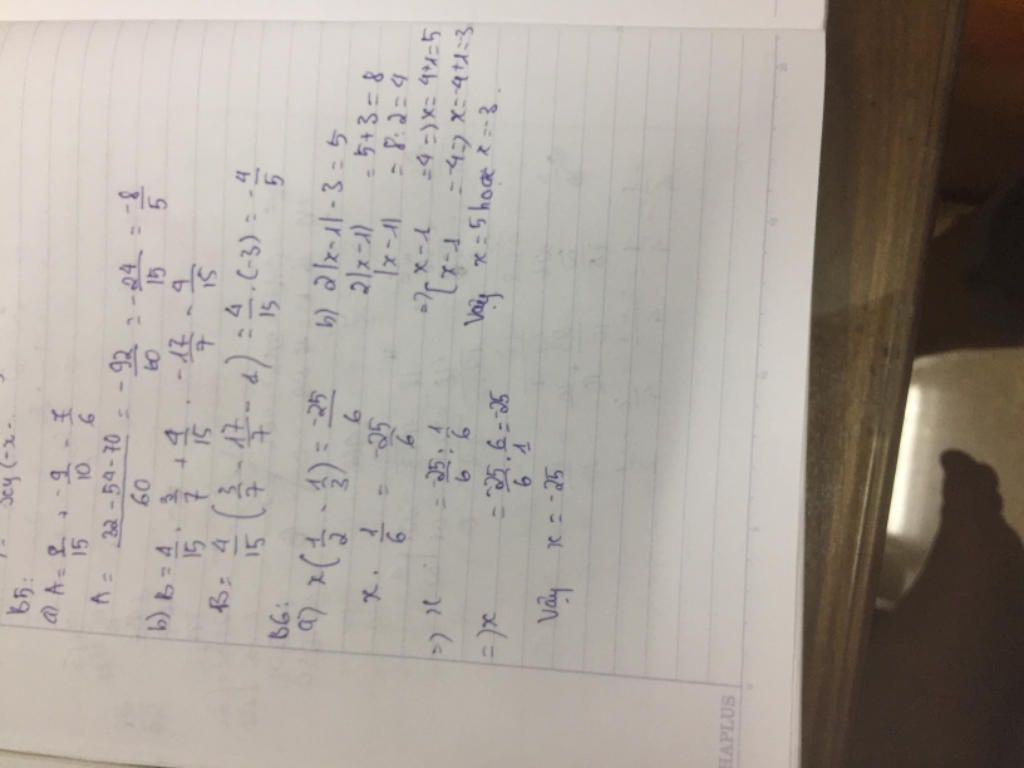 B5:
a) A = 8/15 + -9/10 - 7/6
A = 32-54-70/60 = -92/60 = -24/15 = -8/5
b) B = 4/15 . 3/7 + 4/15 . -17/7 - 4/15
B = 4/15 (3/7 - 17/7 - 1) = 4/15 . (-3) = -4/5
B6:
a) x(1/2 - 1/3) = -25/6
x . 1/6 = -25/6
=> x = -25/6 : 1/6
=> x = -25/6 . 6/1 = -25
Vậy x = -25
b) 2|x-1| - 3 = 5
2|x-1| = 5+3 = 8
|x-1| = 8:2 = 4
=> [ x-1 = 4 => x = 4+1 = 5
[ x-1 = -4 => x = -4+1 = -3
Vậy x = 5 hoặc x = -3.
HAPLUS